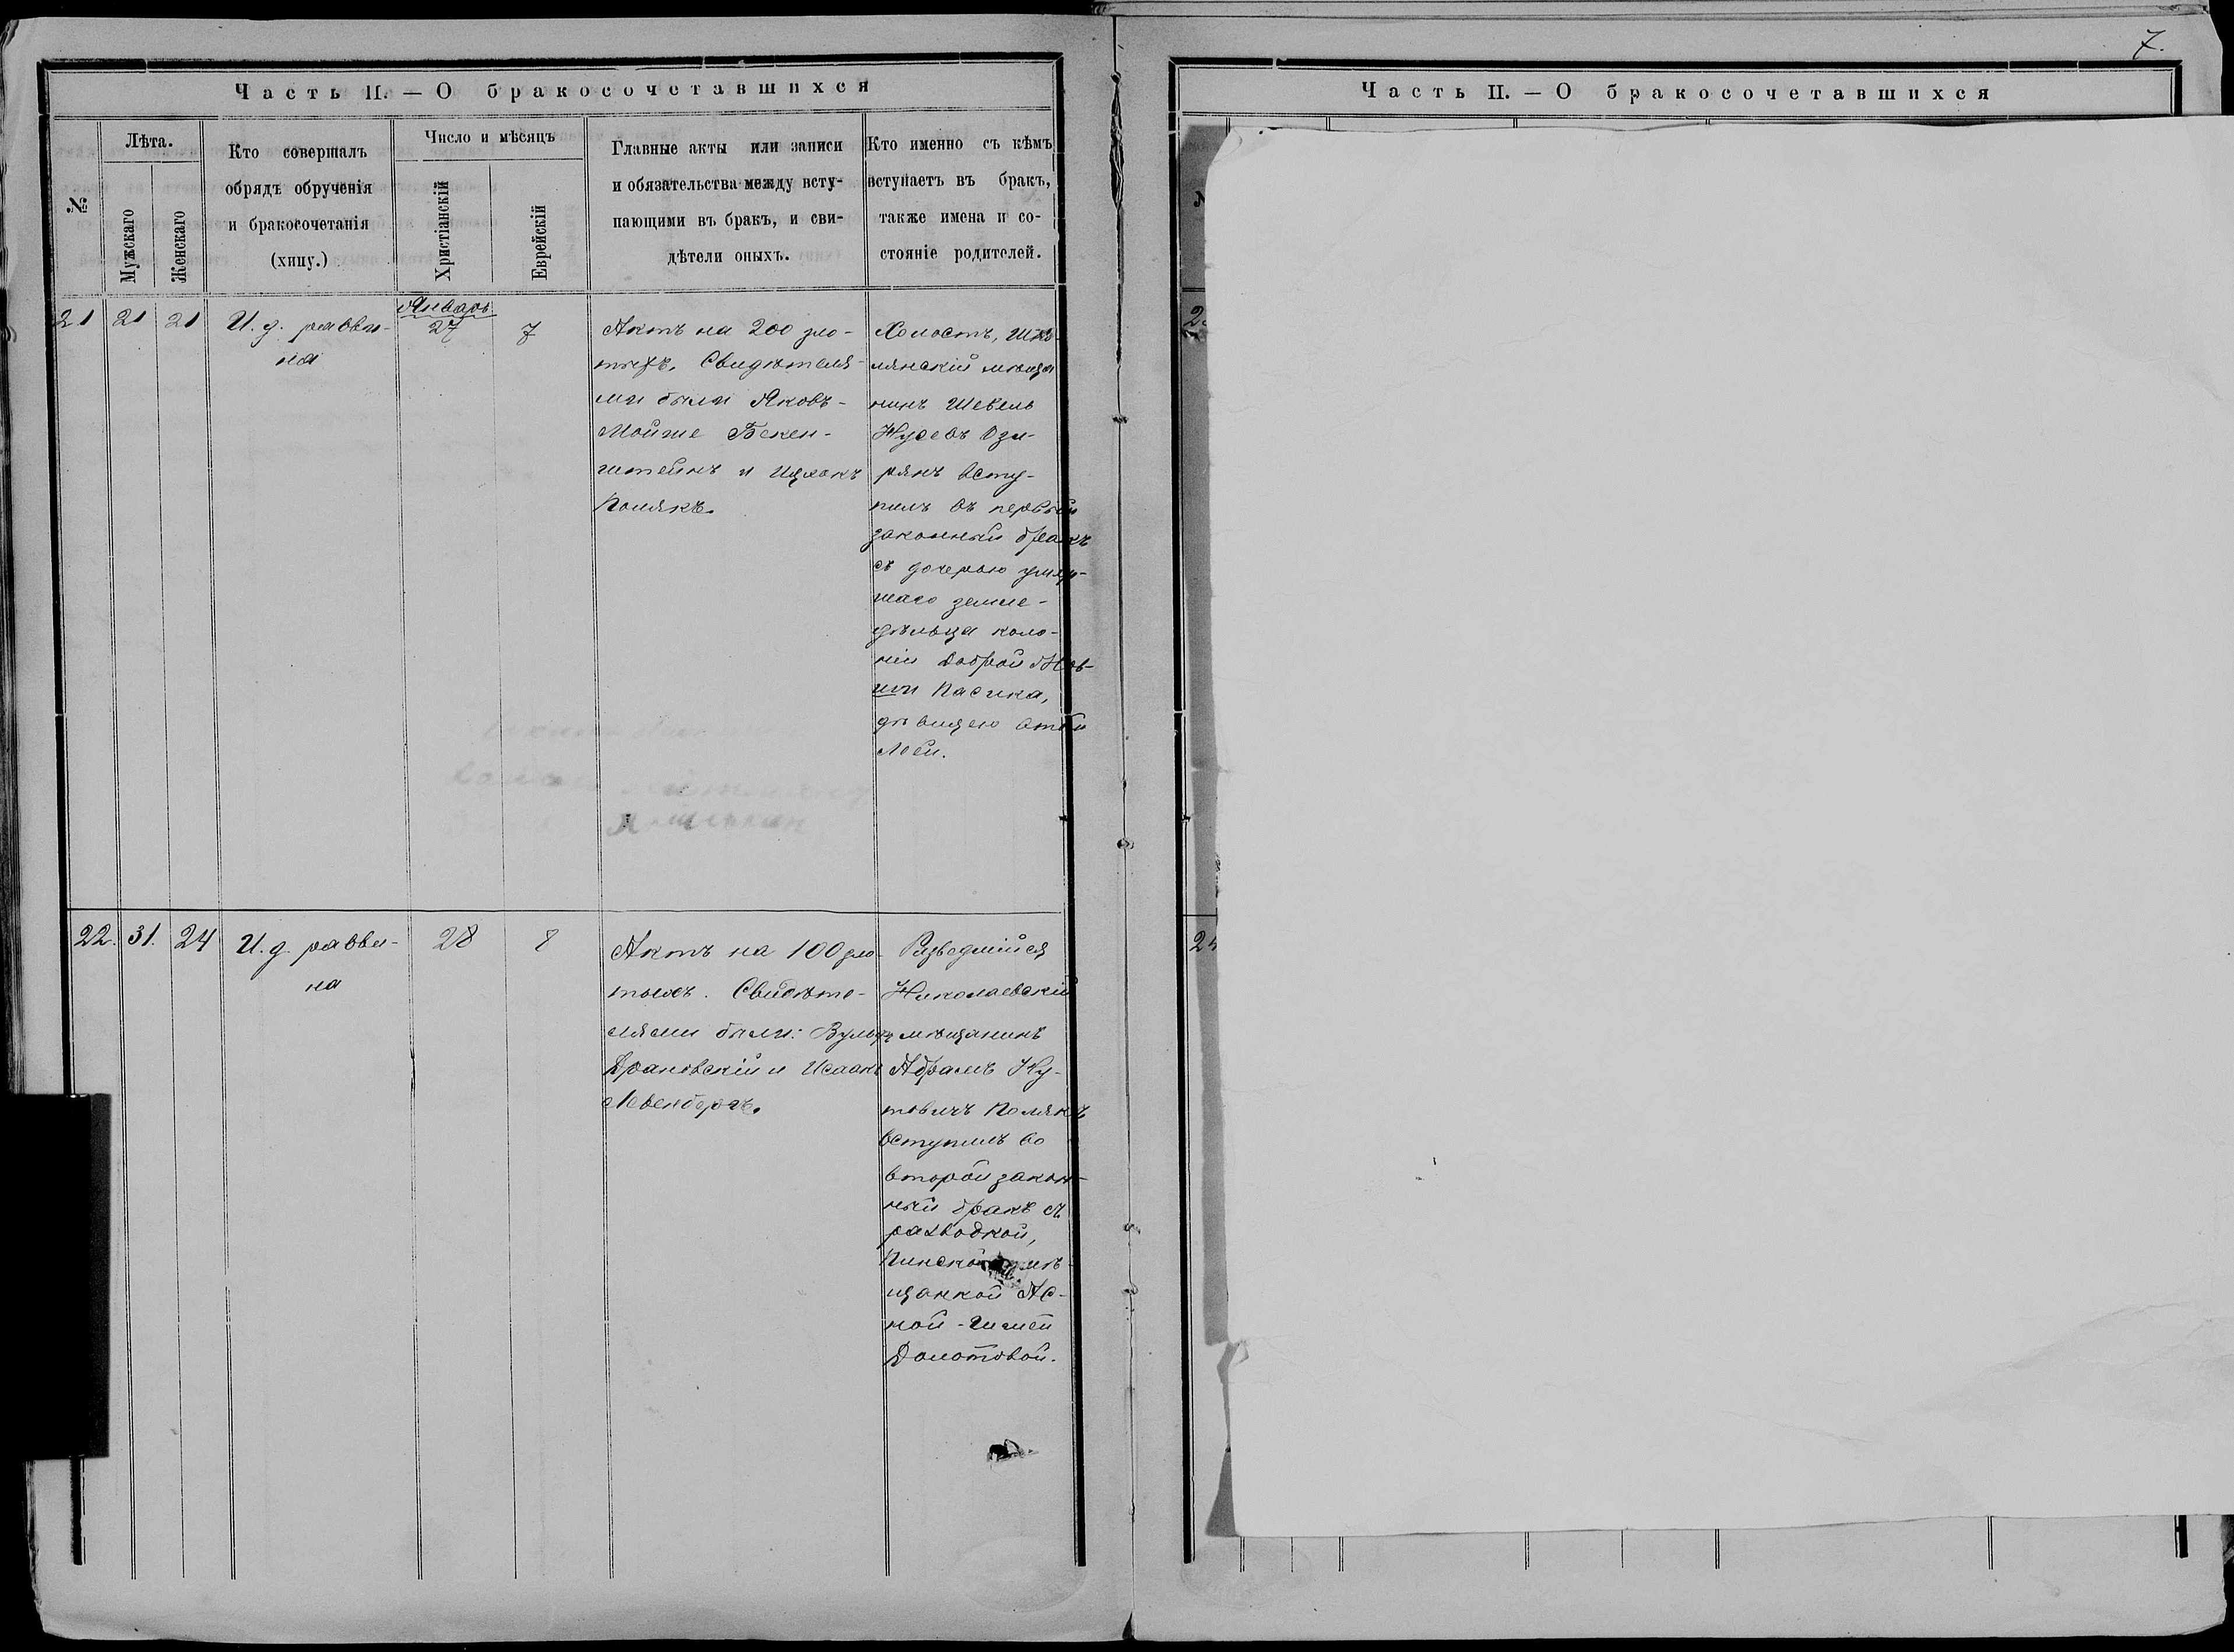 7.
Часть II. — О бракосочетавшихся
№
Лѣта.
Мужскаго
Женскаго
Кто совершалъ
обрядъ обрученія
и бракосочетанія
(хипу.)
Число и мѣсяцъ
Христіанскій
Еврейскій
Главные акты или записи
и обязательства между всту-
пающими въ бракъ, и сви-
дѣтели оныхъ.
Кто именно съ кѣмъ
вступаетъ въ бракъ,
также имена и со-
стояніе родителей.
21
21
21
И. д. равви-
на
Январь
27
7
Актъ на 200 зло-
тыхъ. Свидѣтеля-
ми были Яковъ-
Мойше Бекен-
штейнъ и Ицхокъ
Полякъ.
Холостъ, Шкв-
лянскій мѣща
нинъ Шевель
Нусевъ Ози-
рянъ Всту-
пилъ въ первый
законный бракъ
съ дочерью умер-
шаго земле-
дѣльца коло-
ніи Доброй
Пасика,
дѣвицею
Леи.
22.
31.
24
И. д. равви-
на
28
8
Актъ на 100 зло-
тыхъ. Свидѣте-
лями были: Вульфъ
Драновскій и Исаакъ
Левенбергъ.
Разведшійся
Николаевскій
мѣщанинъ
Абрамъ Ну-
товичъ Полякъ
вступилъ во
второй закон-
ный бракъ съ
разводкой,
Пинской мѣ-
щанкой Ас-
ной-
Долотовой.
Часть II. — О бракосочетавшихся